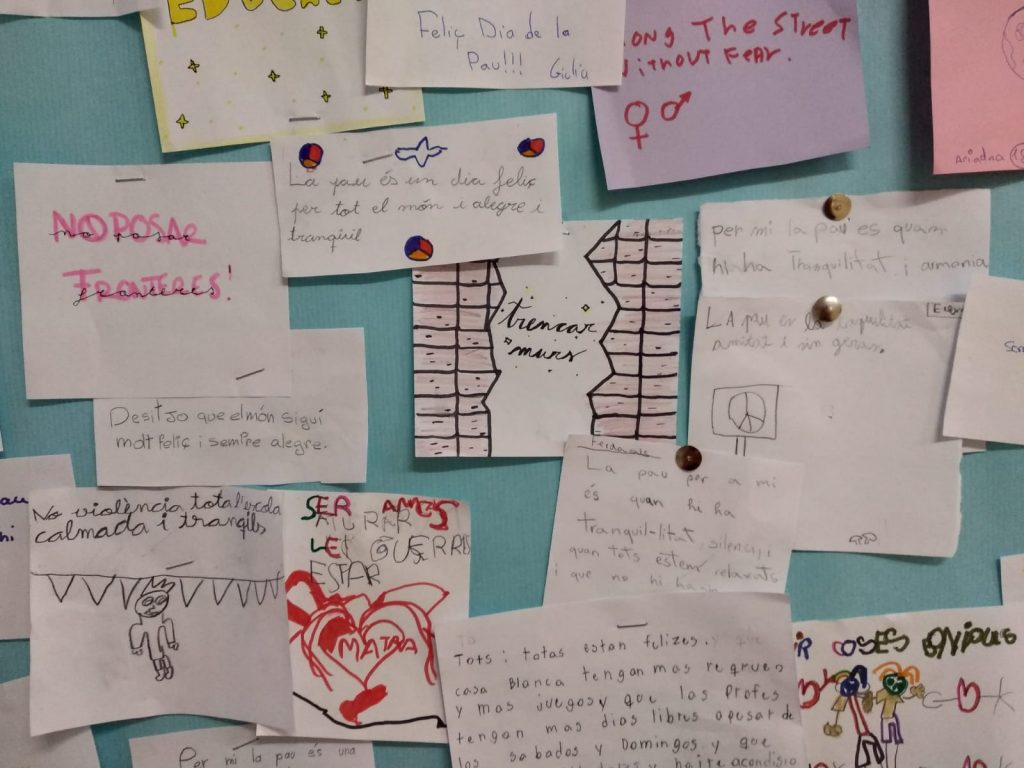 Feliç Dia de la
Pau!!! Giulia
The Street
without Fear.
Ariadna
La pau és un dia feliç
per tot el món i alegre i
tranqüil
NO POSAR
no posar
FRONTERES!
fronteres
trencar
murs
per mi la pau es quan
hi ha Tranquilitat i armonia
LA pau es la
amitat i sin geras.
Desitjo que el món sigui
molt feliç i sempre alegre.
La pau per a mi
és quan hi ha
tranquil-litat, silenci, i
quan tots estem relaxats
i que no hi
No violència tota l'escola
calmada i tranqils
SER AMICS
ATURAR
LES GUERRES
ESTAR
Tots i totas estan felizes. y que
casa Blanca tengan mas
y mas juegos y que los Profes
tengan mas dias libres apesar de
los sabados y Domingos y que
COSES
Per mi la pau és una